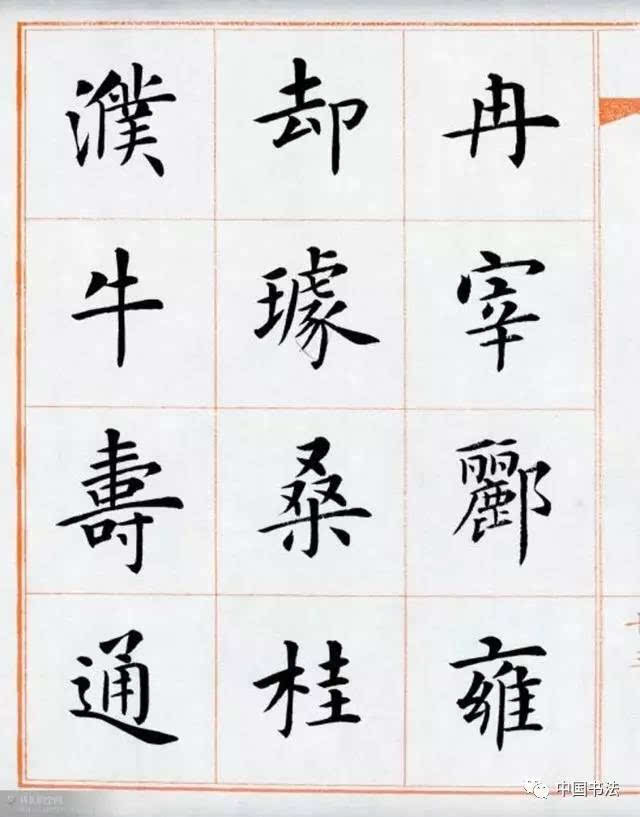 冉宰酈雍
却璩桑桂
濮牛壽通
十三
中国书法